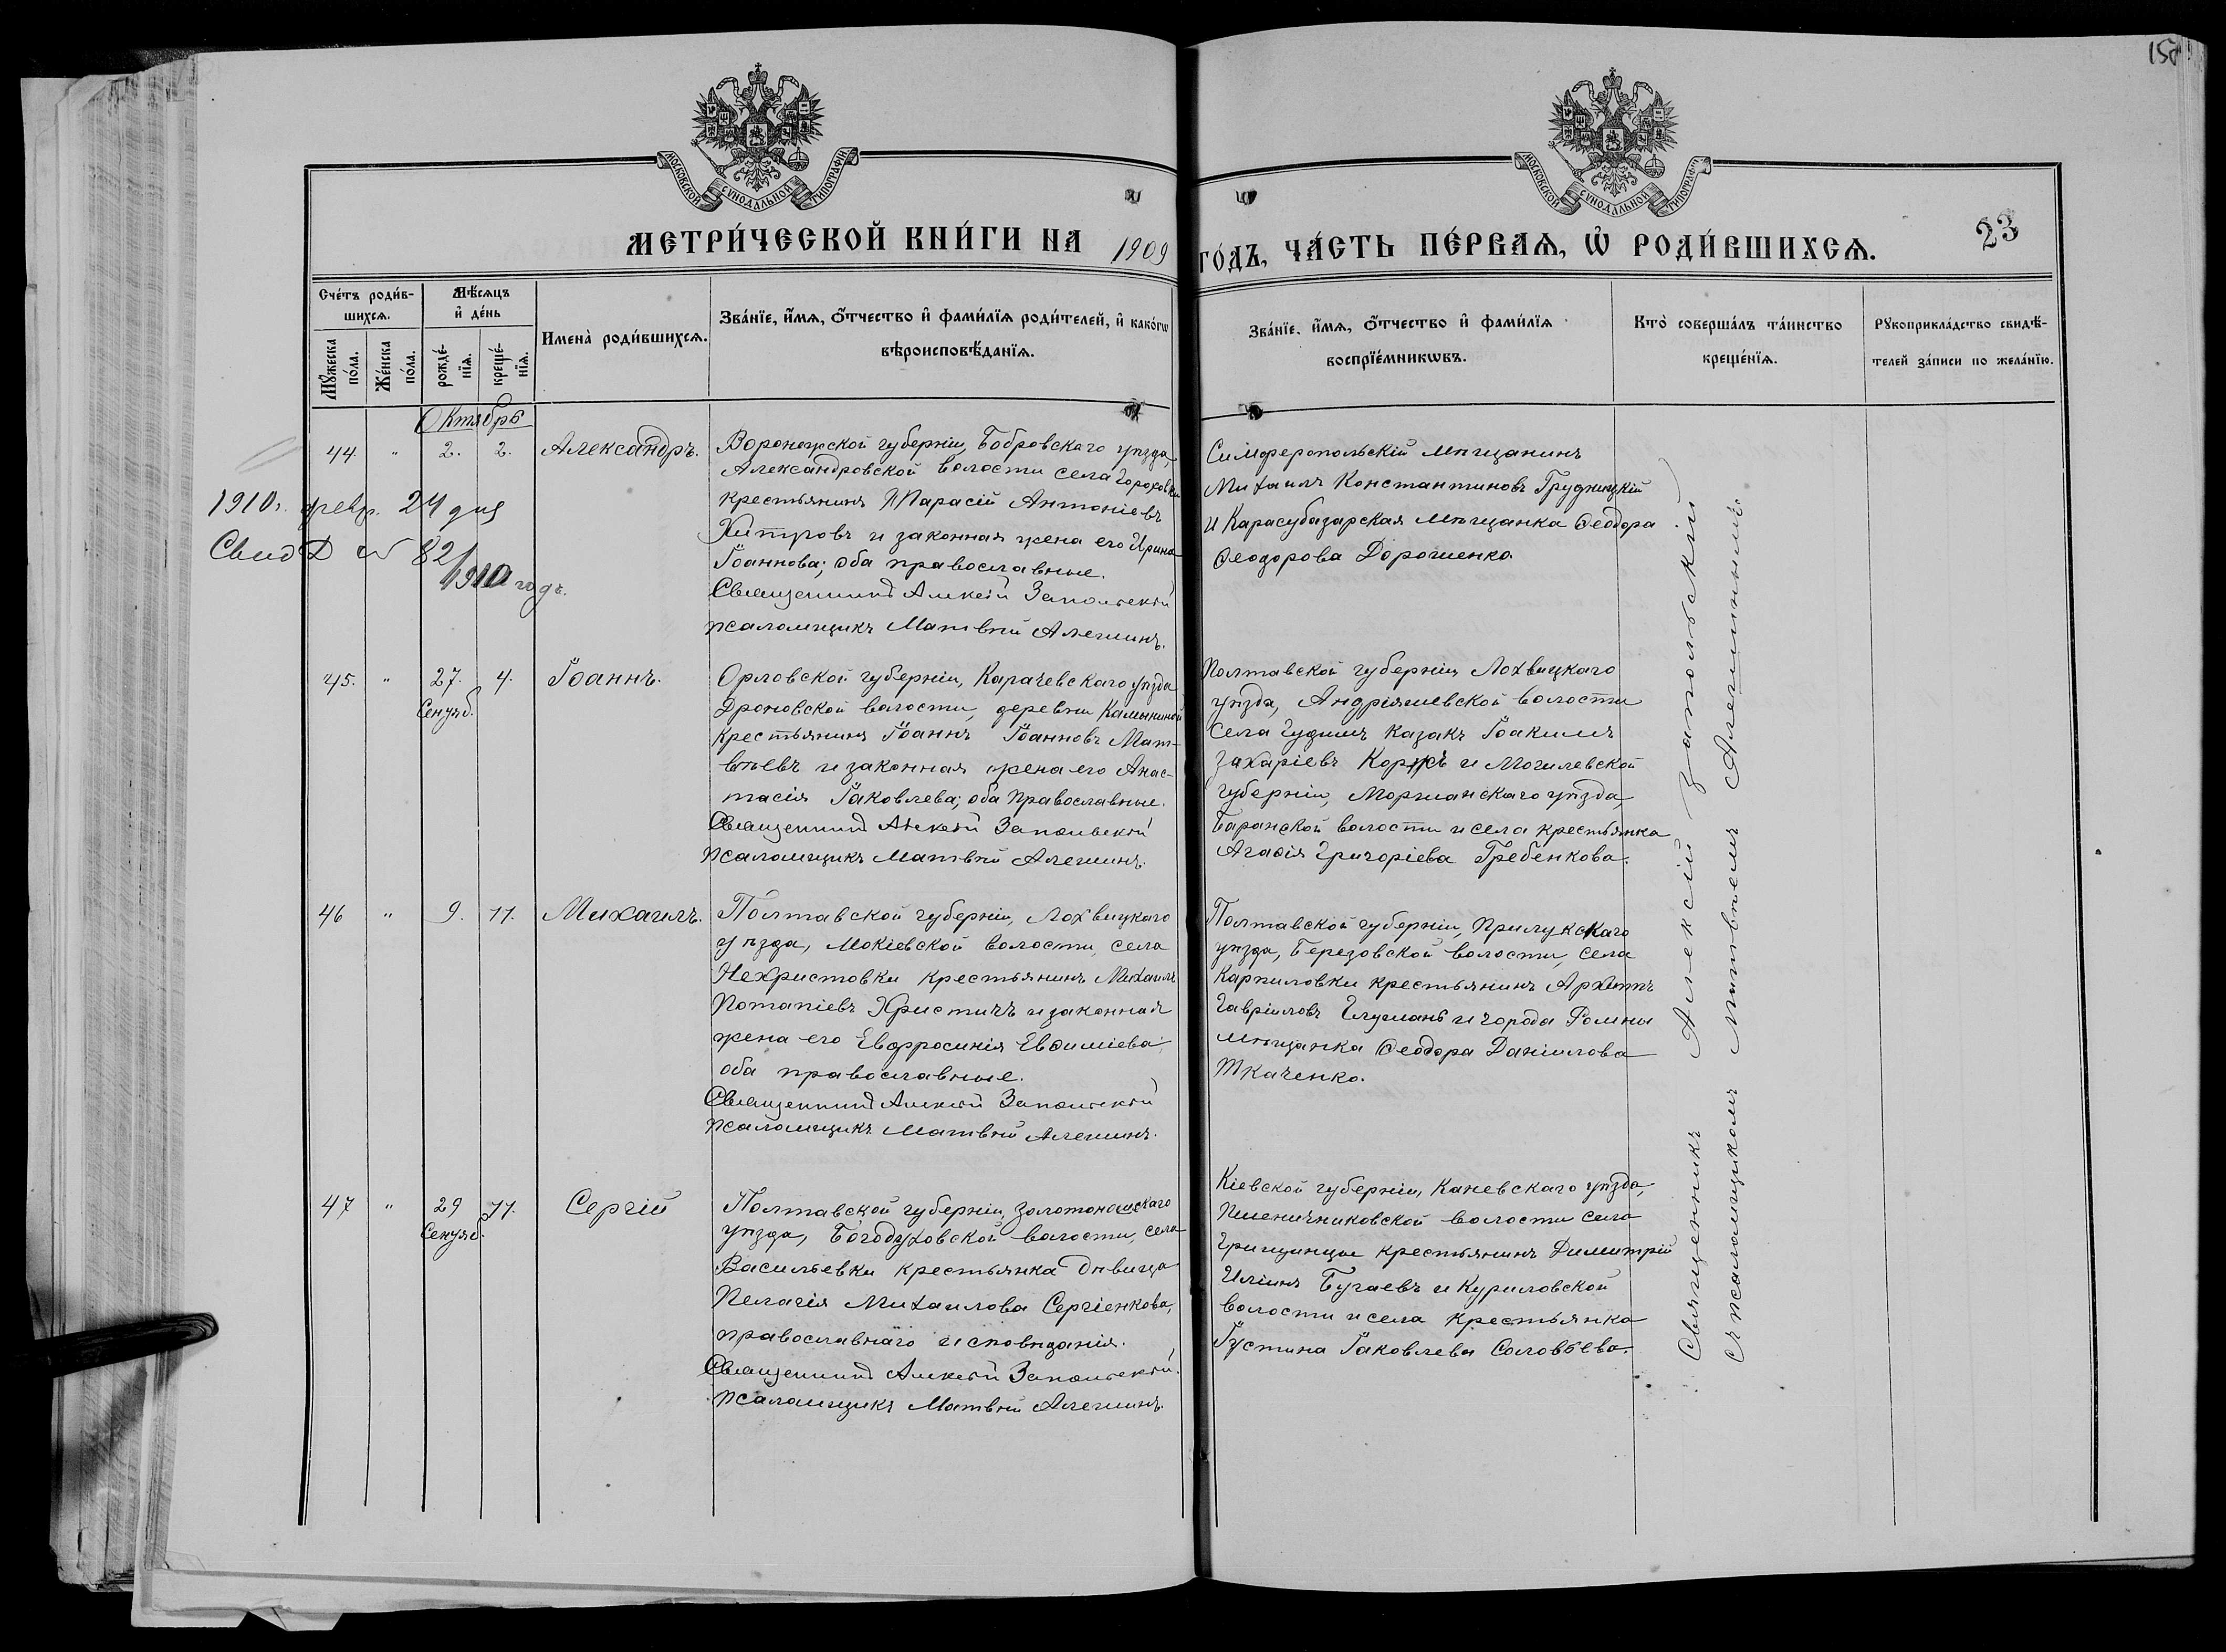 158
МОСКОВСКОЙ СѴНОДАЛЬНОЙ ТИПОГРАФІИ
МОСКОВСКОЙ СѴНОДАЛЬНОЙ ТИПОГРАФІИ
МЕТРИ́ЧЕСКОЙ КНИ́ГИ НА 1909 ГО́ДЪ, ЧА́СТЬ ПЕ́РВАЯ, Ѡ҆ РОДИ́ВШИХСЯ.
23
Сче́тъ роди́в-
шихся.
Мꙋ́жеска по́ла.
Же́нска по́ла.
Мѣ́сяцъ и҆ де́нь
рожде́-нїя.
креще́-нїя.
Имена̀ роди́вшихся.
Зва́нїе, и҆́мя, ѻ҆́тчество и҆ фами́лїя роди́телей, и҆ како́гѡ
вѣроисповѣ́данїя.
Зва́нїе, и҆́мя, ѻ҆́тчество и҆ фами́лїя
воспрїе́мникѡвъ.
Кто̀ соверша́лъ та́инство
креще́нїя.
Рꙋкоприкла́дство свидѣ́-
телей за́писи по жела́нїю.
Октябрь
44. " 2. 2. Александръ.
Воронежской губерніи, Бобровскаго уѣзда,
Александровской волости села Гороховки
крестьянинъ Тарасій Антоніевъ
Хитровъ и законная жена его Ирина
Іоаннова; оба православные.
Священникъ Алексій Запольскій
псаломщикъ Матвѣй Алешинъ.
Симферопольскій мѣщанинъ
Михаилъ Константиновъ Грудницкій
и Карасубазарская мѣщанка Ѳеодора
Ѳеодорова Дорошенко
1910 г. февр. 24 дня
Свид № 82
1910 годъ.
45. " 27. Сентяб. 4. Іоаннъ.
Орловской губерніи, Карачевскаго уѣзда
Дроновской волости, деревни Камыниной
крестьянинъ Іоаннъ Іоанновъ Мат-
вѣевъ и законная жена его Анас-
тасія Іаковлева; оба православные.
Священникъ Алексій Запольскій
псаломщикъ Матвѣй Алешинъ.
Полтавской губерніи Лохвицкаго
уѣзда, Андріяшевской волости
села Гудимъ казакъ Іоакимъ
Захаріевъ Коржъ и Могилевской
губерніи, Моршанскаго уѣзда,
Баранской волости и села крестьянка
Агаѳія Григоріева Гребенкова.
46 " 9. 11. Михаилъ.
Полтавской губерніи, Лохвицкаго
уѣзда, Мокіевской волости, села
Нехристовки крестьянинъ Михаилъ
Потапіевъ Христичъ и законная
жена его Евфросинія Евѳиміева
оба православные.
Священникъ Алексій Запольскій
псаломщикъ Матвѣй Алешинъ.
Полтавской губерніи, Прилукскаго
уѣзда, Березовской волости, села
Карпиловки крестьянинъ Архиппъ
Гавріиловъ Глушань и города Ромны
мѣщанка Ѳеодора Даніилова
Ткаченко.
47 " 29 Сентяб. 11. Сергій
Полтавской губерніи, Золотоношскаго
уѣзда, Богодуховской волости, села
Васильевки крестьянка дѣвица
Пелагія Михаилова Сергіенкова,
православнаго исповѣданія.
Священникъ Алексій Запольскій.
псаломщикъ Матвѣй Алешинъ.
Кіевской губерніи, Каневскаго уѣзда,
Пшеничниковской волости села
Грищинцы крестьянинъ Димитрій
Иліинъ Бугаевъ и Куриловской
волости и села крестьянка
Іустина Іаковлева Соловьева.
Священникъ Алексій Запольскій
съ псаломщикомъ Матвѣемъ Алешинымъ.